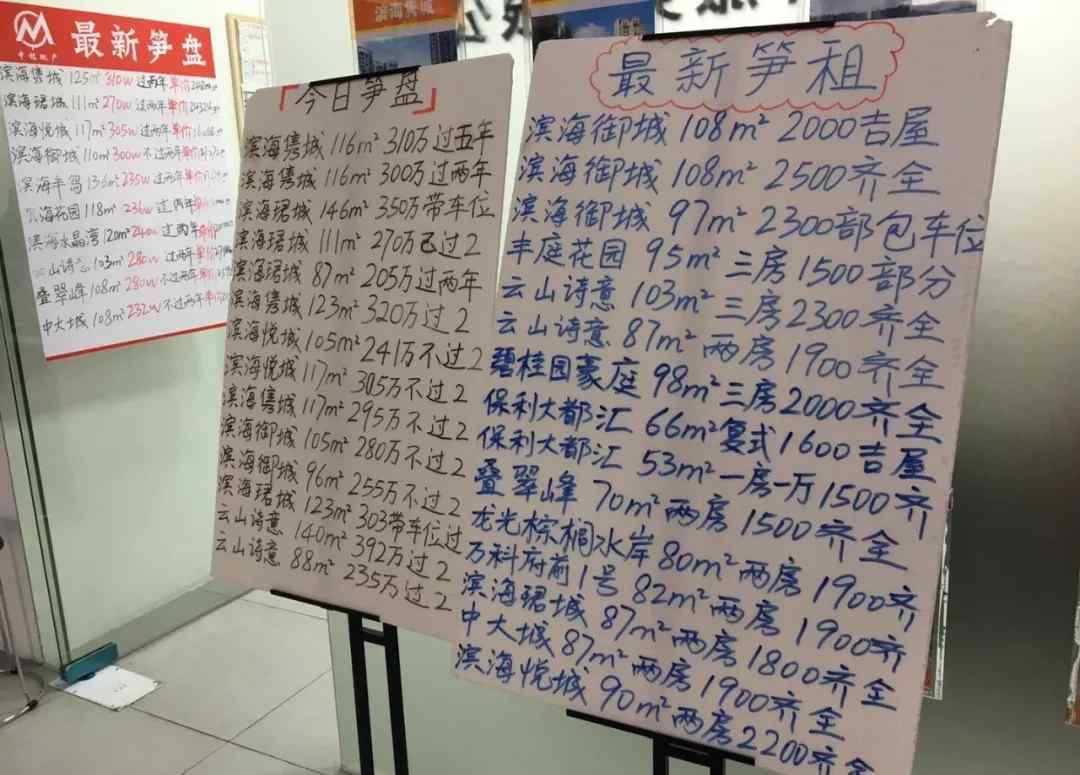 最新笋盘
滨海隽城 125m² 310w 过两年 单价
滨海珺城 111m² 270w 过两年 单价
滨海悦城 117m² 305w 过两年 单价
滨海御城 110m² 300w 不过两年 单价
滨海半岛 136m² 235w 过两年 单价
海花园 118m² 236w 过两年
滨海水晶湾 120m² 240w 过两年
云山诗意 103m² 280w 过两年 单价
叠翠峰 108m² 280w 不过两年 单价
中大城 108m² 232w 不过两年 单价
滨海隽城
「今日笋盘」
滨海隽城 116m² 310万过五年
滨海隽城 116m² 300万过两年
滨海珺城 146m² 350万带车位
滨海珺城 111m² 270万已过2
滨海珺城 87m² 205万过两年
滨海隽城 123m² 320万过2
滨海悦城 105m² 241万不过2
滨海悦城 117m² 305万不过2
滨海隽城 117m² 295万不过2
滨海御城 105m² 280万不过2
滨海御城 96m² 255万不过2
滨海珺城 123m² 303带车位过
云山诗意 140m² 392万过2
云山诗意 88m² 235万过2
最新笋租
滨海御城 108m² 2000吉屋
滨海御城 108m² 2500齐全
滨海御城 97m² 2300部包车位
丰庭花园 95m² 三房1500部分
云山诗意 103m² 三房2300齐全
云山诗意 87m² 两房1900齐全
碧桂园豪庭 98m² 三房2000齐全
保利大都汇 66m² 复式1600吉屋
保利大都汇 53m² 一房一万1500齐
叠翠峰 70m² 两房1500齐全
龙光棕榈水岸 80m² 两房1900齐
万科府前1号 82m² 两房1900齐
滨海珺城 87m² 两房1800齐全
中大城 87m² 两房1900齐全
滨海悦城 90m² 两房2200齐全